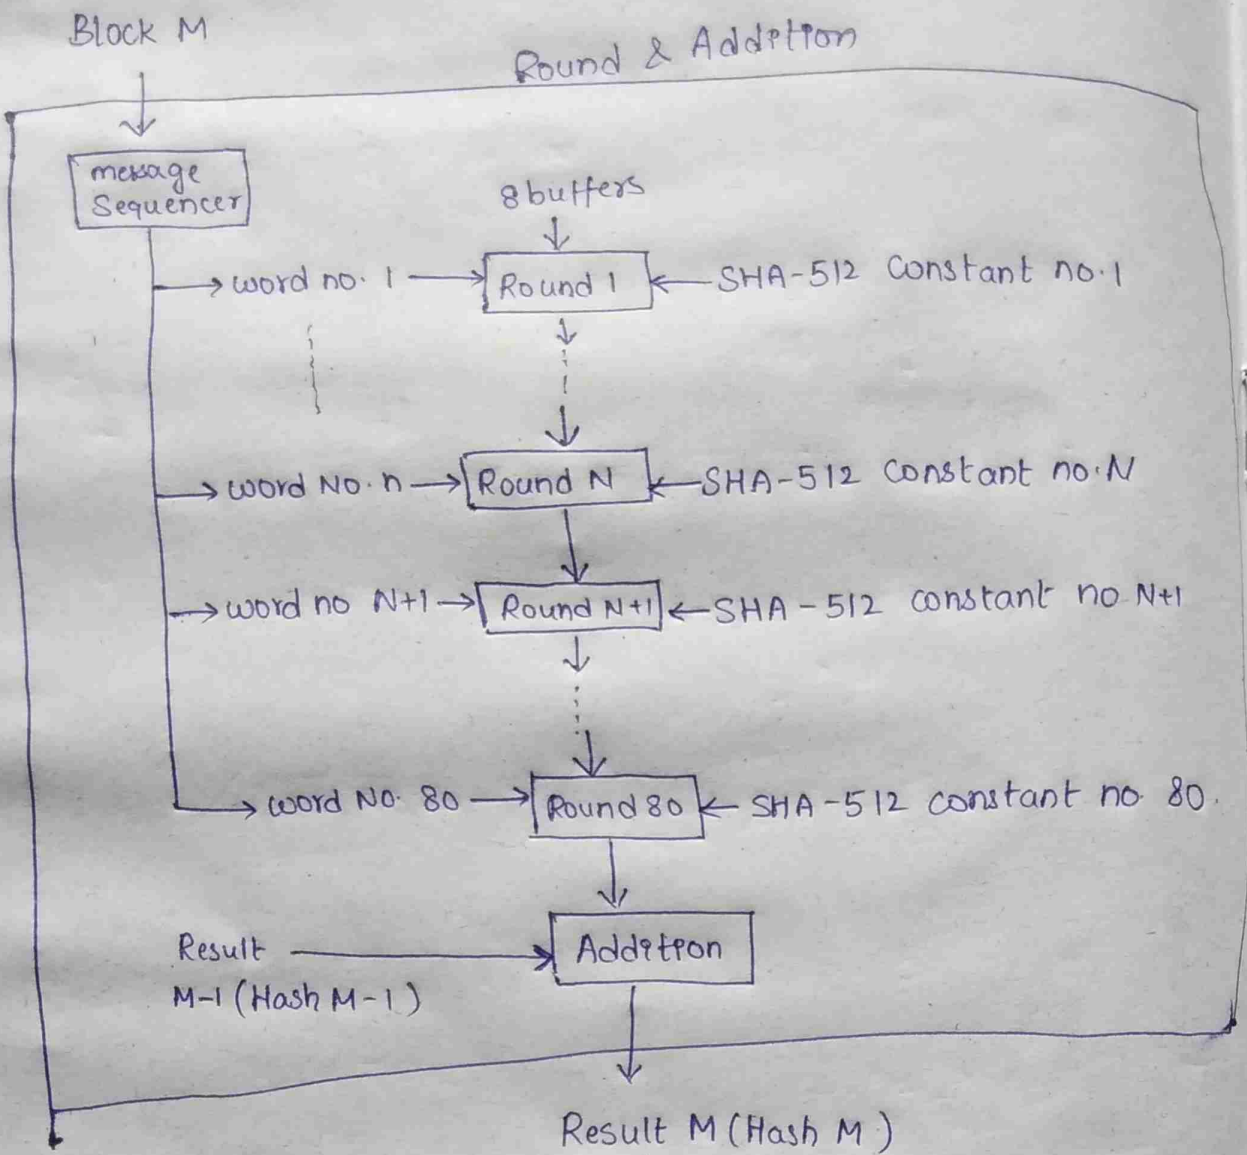 Block M
Round & Addition
message
Sequencer
8 buffers
word no. 1
Round 1
SHA-512 Constant no.1
word No. n
Round N
SHA-512 Constant no.N
word no N+1
Round N+1
SHA-512 constant no N+1
word No. 80
Round 80
SHA-512 constant no 80.
Result
M-1 (Hash M-1)
Addition
Result M (Hash M)